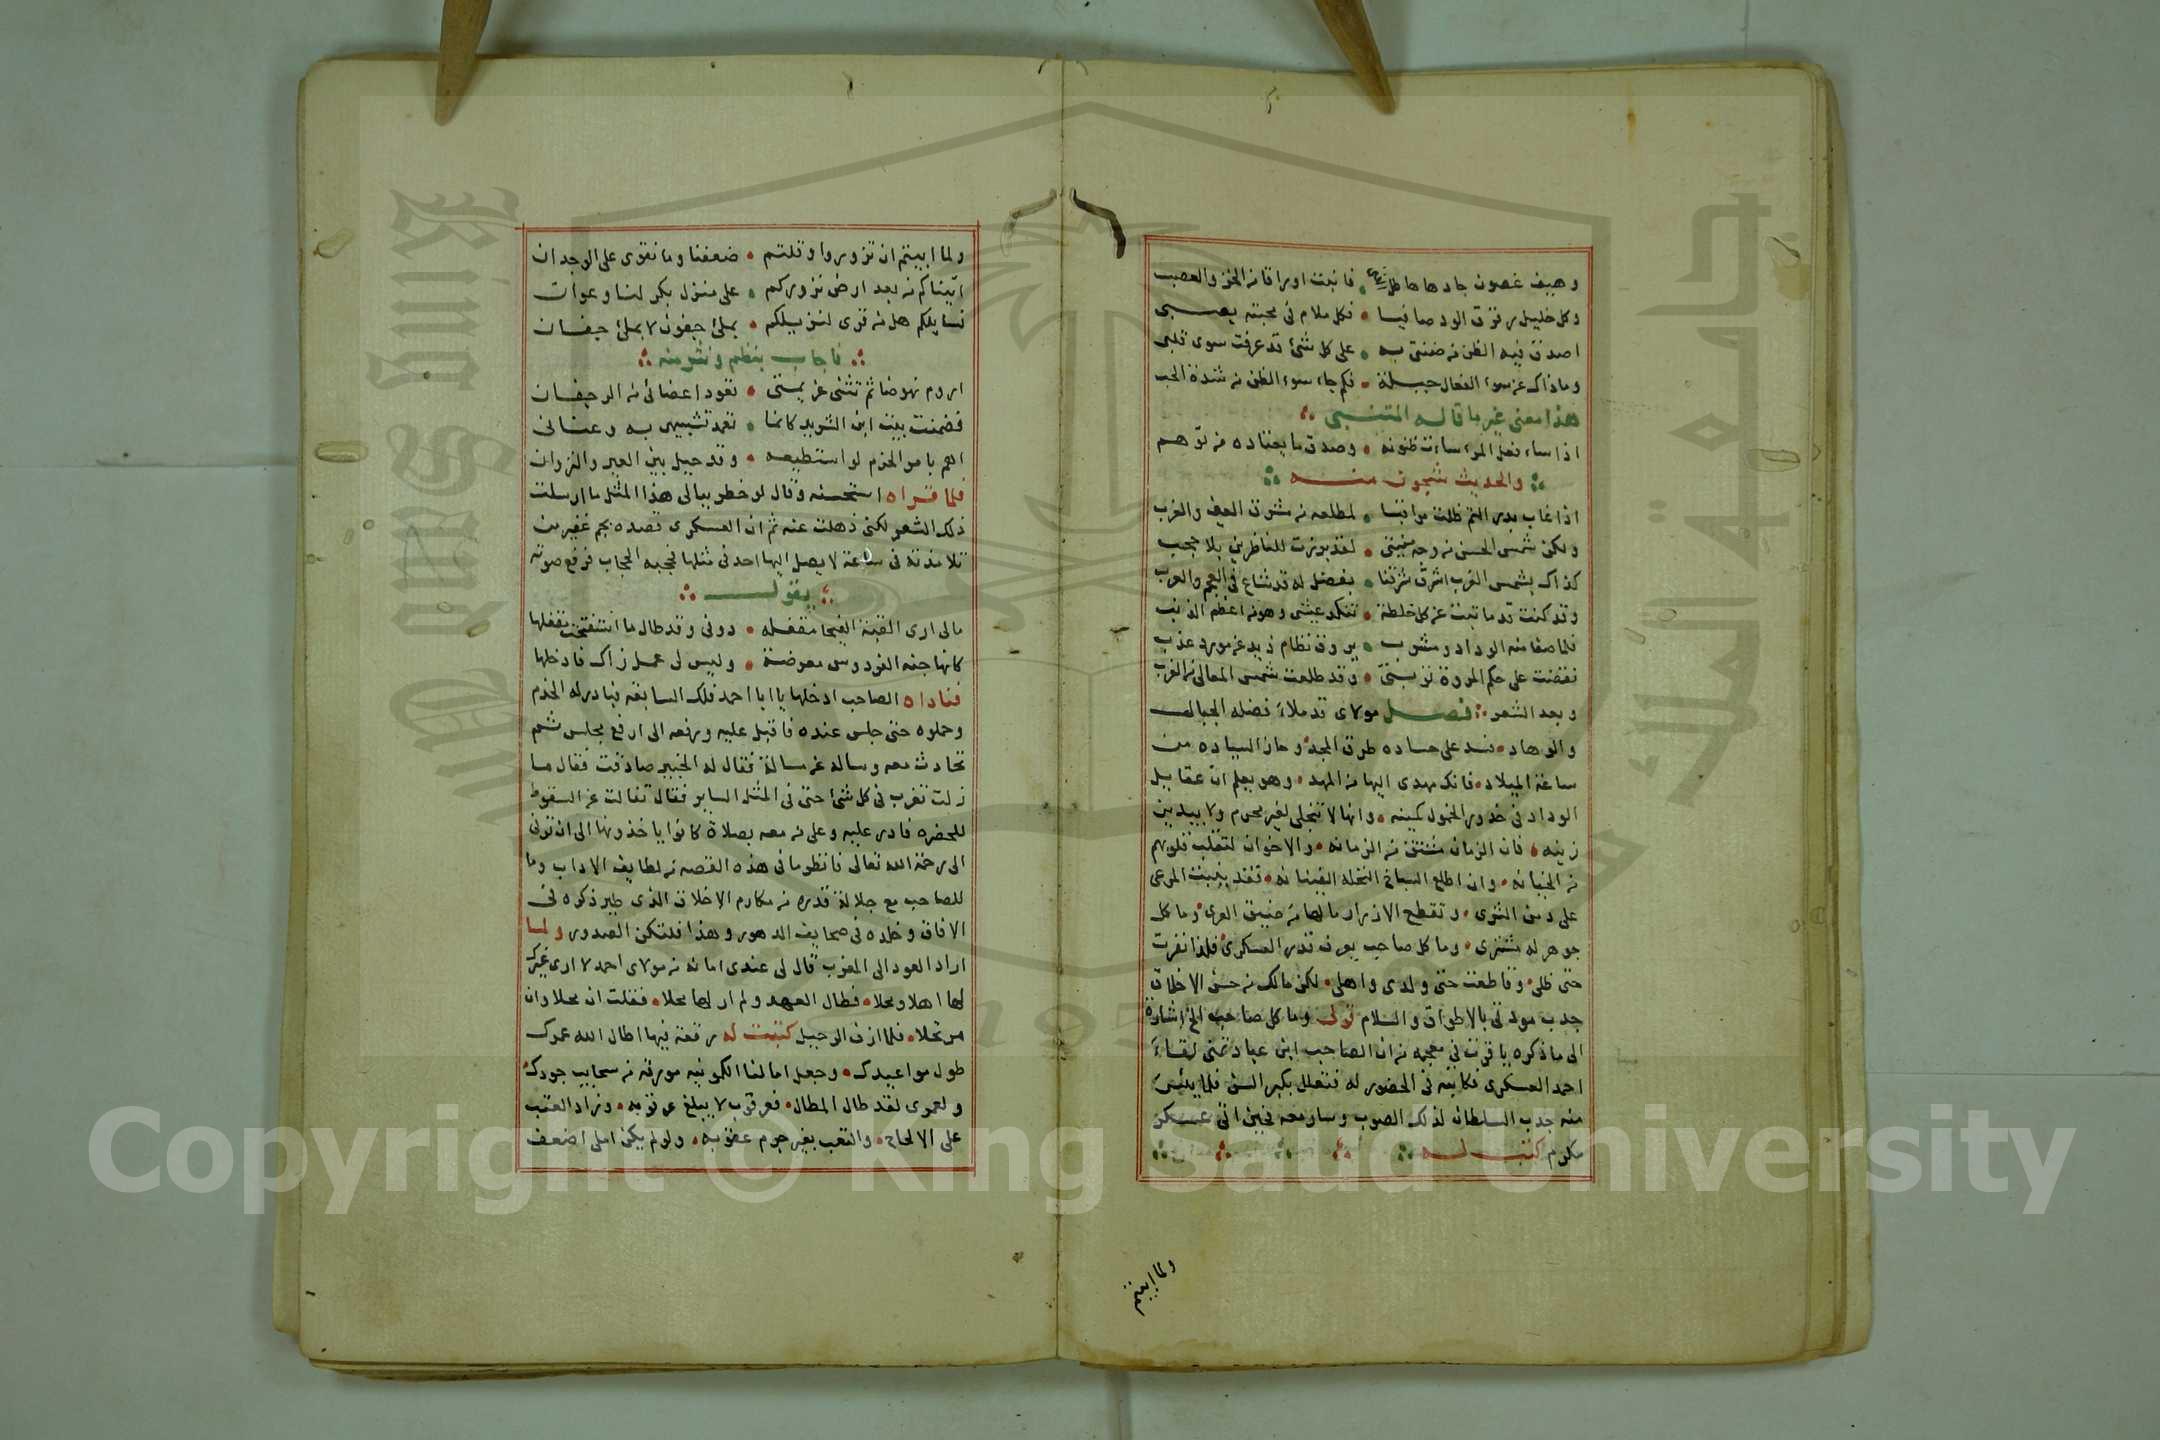 وهيف غصون جادها هاطل فانبتت اوراقا من الخز والعصب
وكل خليل رنق الود صافيا • فكل ملام في محبته يصبى
اصدق فيه الظن من ضنتى به • على كل شئ قد عرفت سوى قلبى
وماذاك عن سوء الفعال جبلة • فكم جاء سوء الظن من شدة الحب
هذا معنى غير ما قاله المتنبى
اذا ساء فعل المرء ساءت ظنونه • وصدق ما يعتاده من توهم
والحديث شجون منه
اذا غاب بدر التم ظلت مراقبا • لمطلعه من مشرق العين والغرب
ولكن شمس الحسن من وجه منيتى • لقد برزت للناظرين بلا حجب
كذاك بشمس الغرب اشرق شرقنا • بفضل له قد شاع في العجم والعرب
وقد كنت قد ما تبت عن كل خلطة • تنكد عيشى وهو من اعظم الذنب
فلما صفا منه الوداد ومشرب • يروق نظام زيد عن مورد عذب
نقضت على حكم المروة توبتى • وقد طلعت شمس المعالى من الغرب
وبعد الشعر فصل مولاى قد ملاء فضله الجبال
والوهاد • وسد على حساده طرق المجد • وحاز السياده من
ساعة الميلاد • فانك مهدى اليها من المهد • وهو يعلم ان عقايل
الوداد في خدور الخمول كمينه • وانها لا تتجلى لغير محرم ولا يبدين
زينه • فان الزمان مشتق من الزمانه • والاخوان لتقلب قلوبهم
من الخيانه • وان اطلع السباخ النخله الفينانه • فقد ينبت المرعى
على دمن الثرى • وتقطع الازرار مالها من ضيق العرى • وما كل
جوهر له مشترى • وما كل صاحب يعرف قدر العسكرى • فلذا نفرت
حتى ظلى • وقاطعت حتى ولدى واهلى • لكن مالك من حسن الاخلاق
جذب مودتى بالاطواق والسلام قولى وما كل صاحب الخ اشارة
الى ما ذكره ياقوت في معجمه من ان الصاحب ابن عباد تمنى لقاء
احمد العسكرى فكاتبه في الحضور له فتعلل بكبر السن فلما يئس
منه جذب السلطان لذلك الصوب وسار معه فحين اتى عسكر
مكرم كتب له
ولما ابيتم
ولما ابيتم ان تزوروا وقلتم • ضعفنا وما نقوى على الوجدان
اتيناكم من بعد ارض نزوركم • على منزل بكر لنا وعوان
نسايلكم هل من قرى لنزيلكم • بملئ جفون لا بملئ جفان
فاجاب بنظم ونثر منه
اروم نهوضا ثم تثنى عزيمتى • تعود اعضائى من الرجفان
فضمنت بيت ابن الشريد كانما • تعمد تشبيهى به وعنانى
اهم بامر الحزم لو استطيعه • وقد حيل بين العير والنزوان
فلما قراه استحسنه وقال لو خطر ببالى هذا المثل ما ارسلت
ذلك الشعر لكنى ذهلت عنه ثم ان العسكرى قصده بجم غفير من
تلامذته في ساعة لا يصل اليها احد في مثلها فحجبه الحجاب فرفع صوته
يقول
مالى ارى القبة الفيحا مقفله • دونى وقد طال ما استفتحت مقفلها
كانها جنه الفردوس معرضة • وليس لى عمل زاك فادخلها
فناداه الصاحب ادخلها يا ابا احمد فلك السابقه فبادر له الخدم
وحملوه حتى جلس عنده فاقبل عليه ورفعه الى ارفع مجلس ثم
تحادث معه وساله عن مسالة فقال له الخبير صادفت فقال ما
زلت تغرب في كل شئ حتى في المثل الساير فقال تفالت عن السقوط
للحضره فادر عليه وعلى من معه بصلاة كانوا ياخذونها الى ان توفى
الى رحمة الله تعالى فانظر ما في هذه القصه من لطايف الاداب وما
للصاحب مع جلالة قدره من مكارم الاخلاق الذى طير ذكره في
الافاق وخلده في صحايف الدهور وهذا فلتكن الصدور ولما
اراد العود الى المغرب قال لى عندى امانه من مولاى احمد لا ارى غيرك
لها اهلا ومحلا • فطال العهد ولم ار لها محلا • فقلت ان محلا وان
مرتحلا • فلما ازف الرحيل كتبت له رقعة فيها اطال الله عمرك
طول مواعيدك • وجعل امالنا الكمونيه مورقه من سحايب جودك
ولعمرى لقد طال المطال • فعرقوب لا يبلغ عرقوبه • وزاد العتب
على الالحاح • والتعب بغير جرم عقوبه • ولو لم يكن املى اضعف